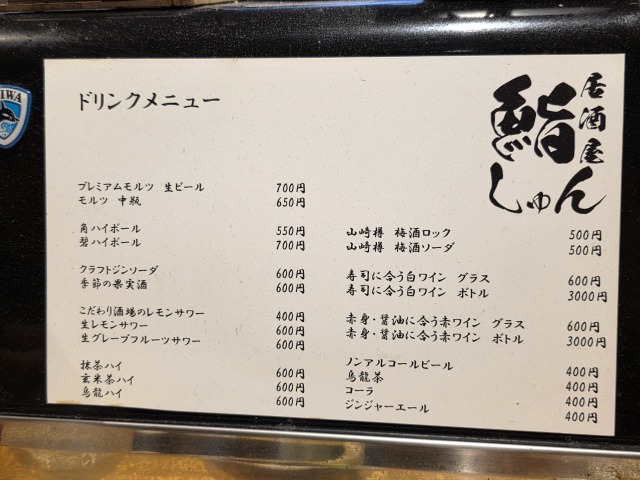 居酒屋
鮨しゅん
ドリンクメニュー
プレミアムモルツ 生ビール 700円
モルツ 中瓶 650円
角ハイボール 550円
碧ハイボール 700円
クラフトジンソーダ 600円
季節の果実酒 600円
こだわり酒場のレモンサワー 400円
生レモンサワー 600円
生グレープフルーツサワー 600円
抹茶ハイ 600円
玄米茶ハイ 600円
烏龍ハイ 600円
山崎樽 梅酒ロック 500円
山崎樽 梅酒ソーダ 500円
寿司に合う白ワイン グラス 600円
寿司に合う白ワイン ボトル 3000円
赤身・醤油に合う赤ワイン グラス 600円
赤身・醤油に合う赤ワイン ボトル 3000円
ノンアルコールビール 400円
烏龍茶 400円
コーラ 400円
ジンジャーエール 400円